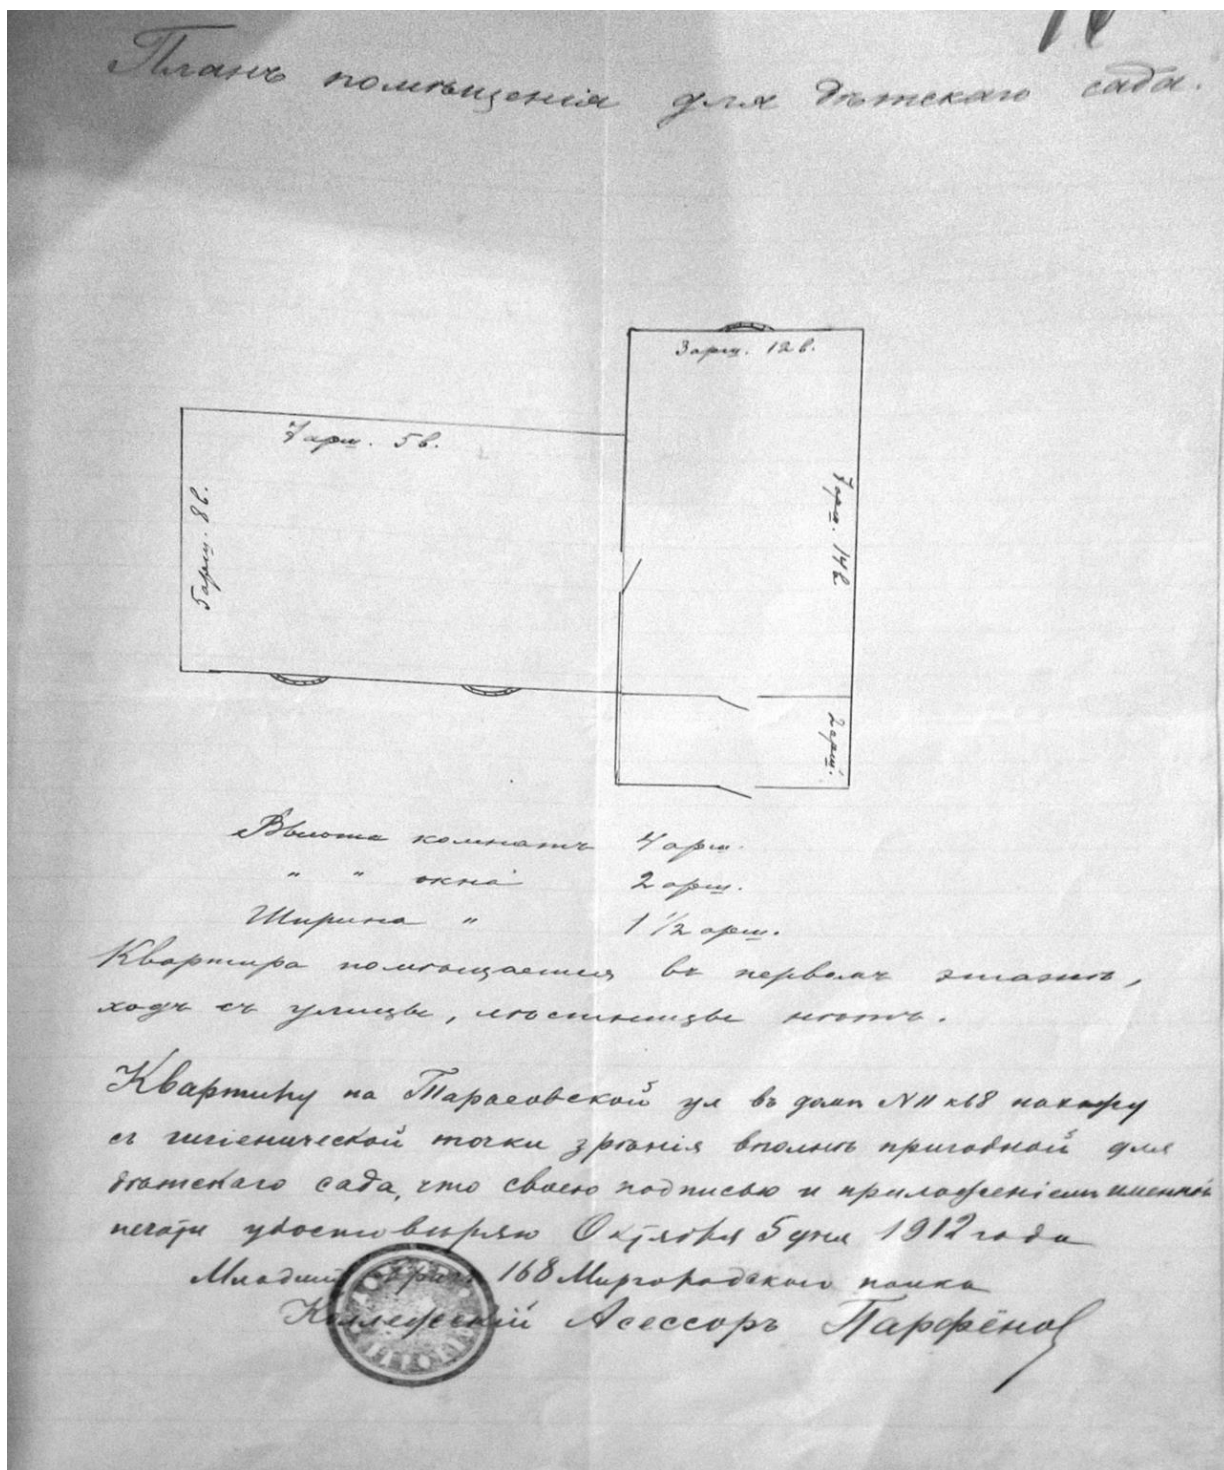 Планъ помѣщенія для дѣтскаго сада.
3 арш. 12 в.
7 арш. 5 в.
5 арш. 8 в.
7 арш. 14 в
2 арш.
Высота комнатъ 4 арш.
" " окна 2 арш.
Ширина " 1 1/2 арш.
Квартира помѣщается въ первомъ этажѣ,
ходъ съ улицы, лѣстницы нѣтъ.
Квартиру на Тарасовской ул въ домѣ N 11 к 18 нахожу
съ гигіенической точки зрѣнія вполнѣ пригодной для
дѣтскаго сада, что своею подписью и приложеніемъ именной
печати удостовѣряю Октября 5 дня 1912 года
Младшій врачъ 168 Миргородскаго полка
Коллежскій Асессоръ Парфёновъ